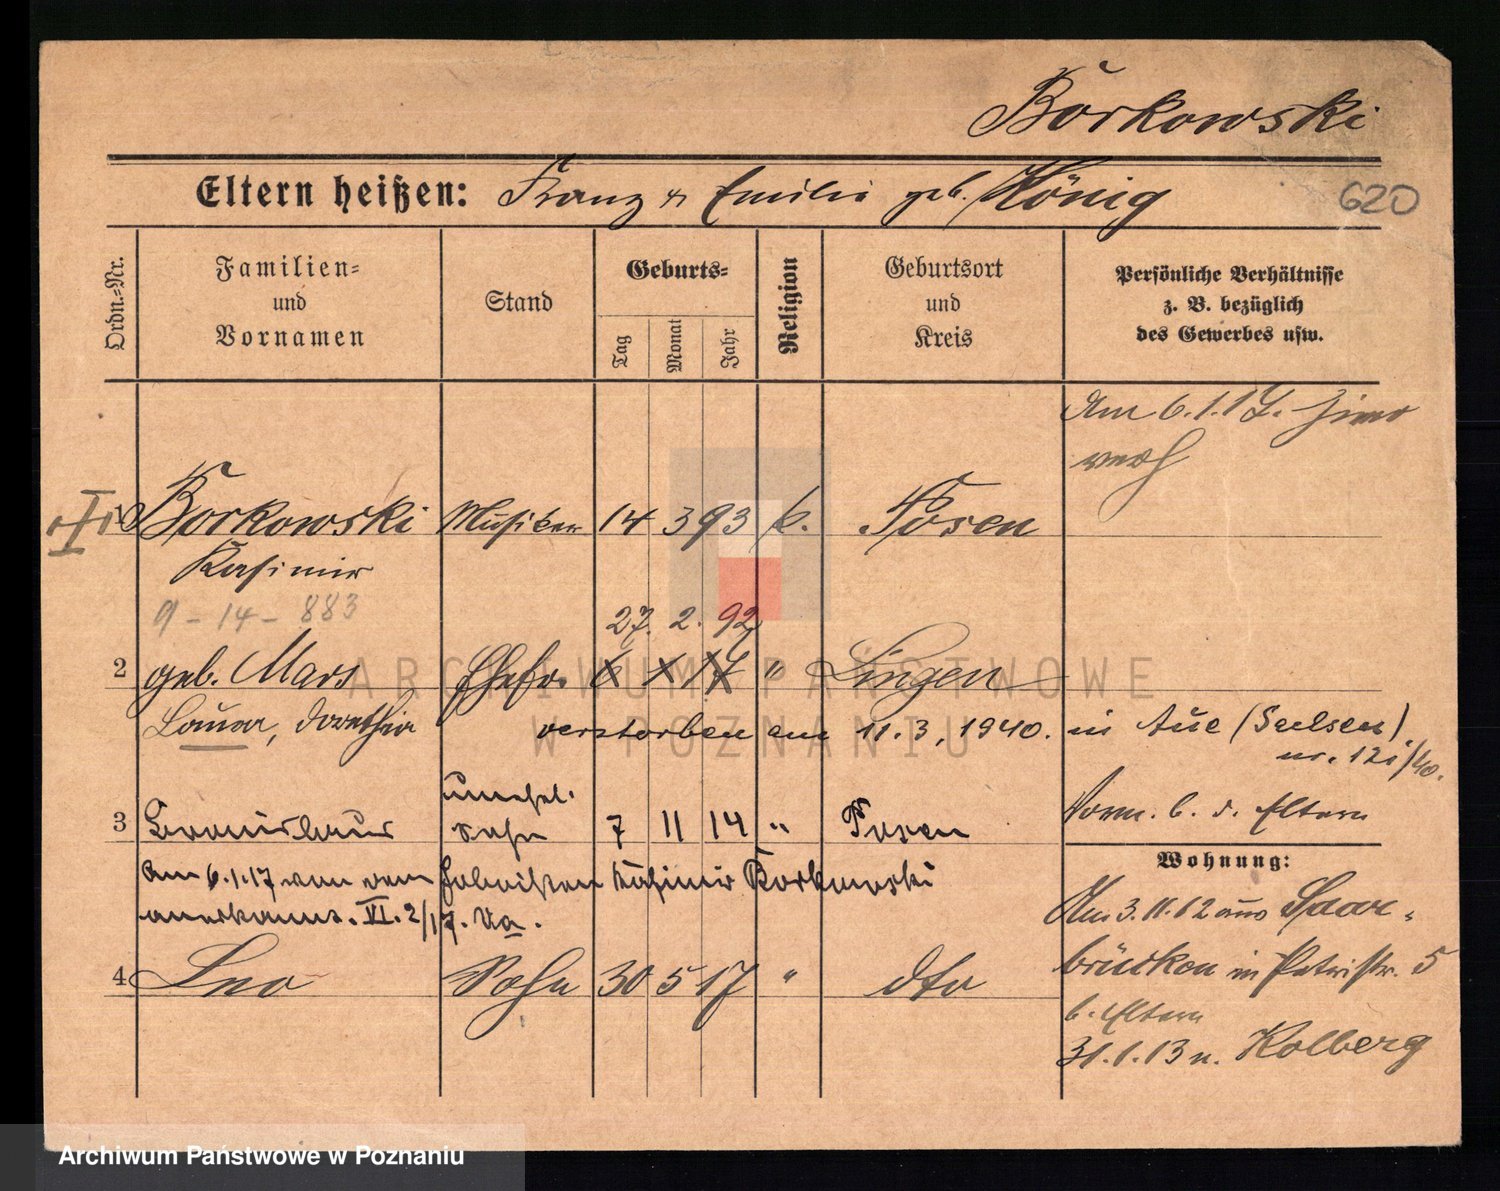 Borkowski
Eltern heißen: Franz u Emilie geb. König
620
Ordn.-Nr.
Familien-
und
Vornamen
Stand
Geburts-
Tag
Monat
Jahr
Religion
Geburtsort
und
Kreis
Persönliche Verhältnisse
z. B. bezüglich
des Gewerbes usw.
Am 6.1.17.
verh
1 Borkowski Musiker 14 3 93 k. Posen
Kasimir
9-14-883
27. 2. 92
2 geb. Mars Ehefr. 6 1 17 " Lingen
Laura, Dorothea verstorben am 11.3.1940. in Aue (Sachsen)
nr. 121/40.
3 Bronislaus unehel. Sohn 7 11 14 " Posen
Vorm. b. d. Eltern
Am 6.1.17 von dem Kasimir Borkowski
anerkannt. VI. 2/17. Va.
4 Leo Sohn 30 5 17 " dto
Wohnung:
Am 3.11.12 aus Saar-
brücken in Patristr. 5
b. Eltern
31.1.13 n. Kolberg
ARCHIWUM PAŃSTWOWE
W POZNANIU
Archiwum Państwowe w Poznaniu